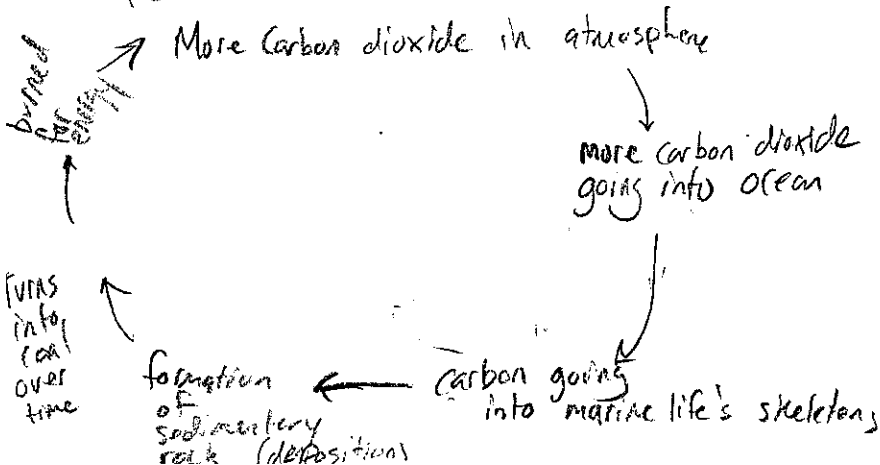 More Carbon dioxide in atmosphere
more carbon dioxide
going into ocean
carbon going
into marine life's skeletons
formation
of
sedimentary
rock (deposition)
turns
into
coal
over
time
burned
for
energy